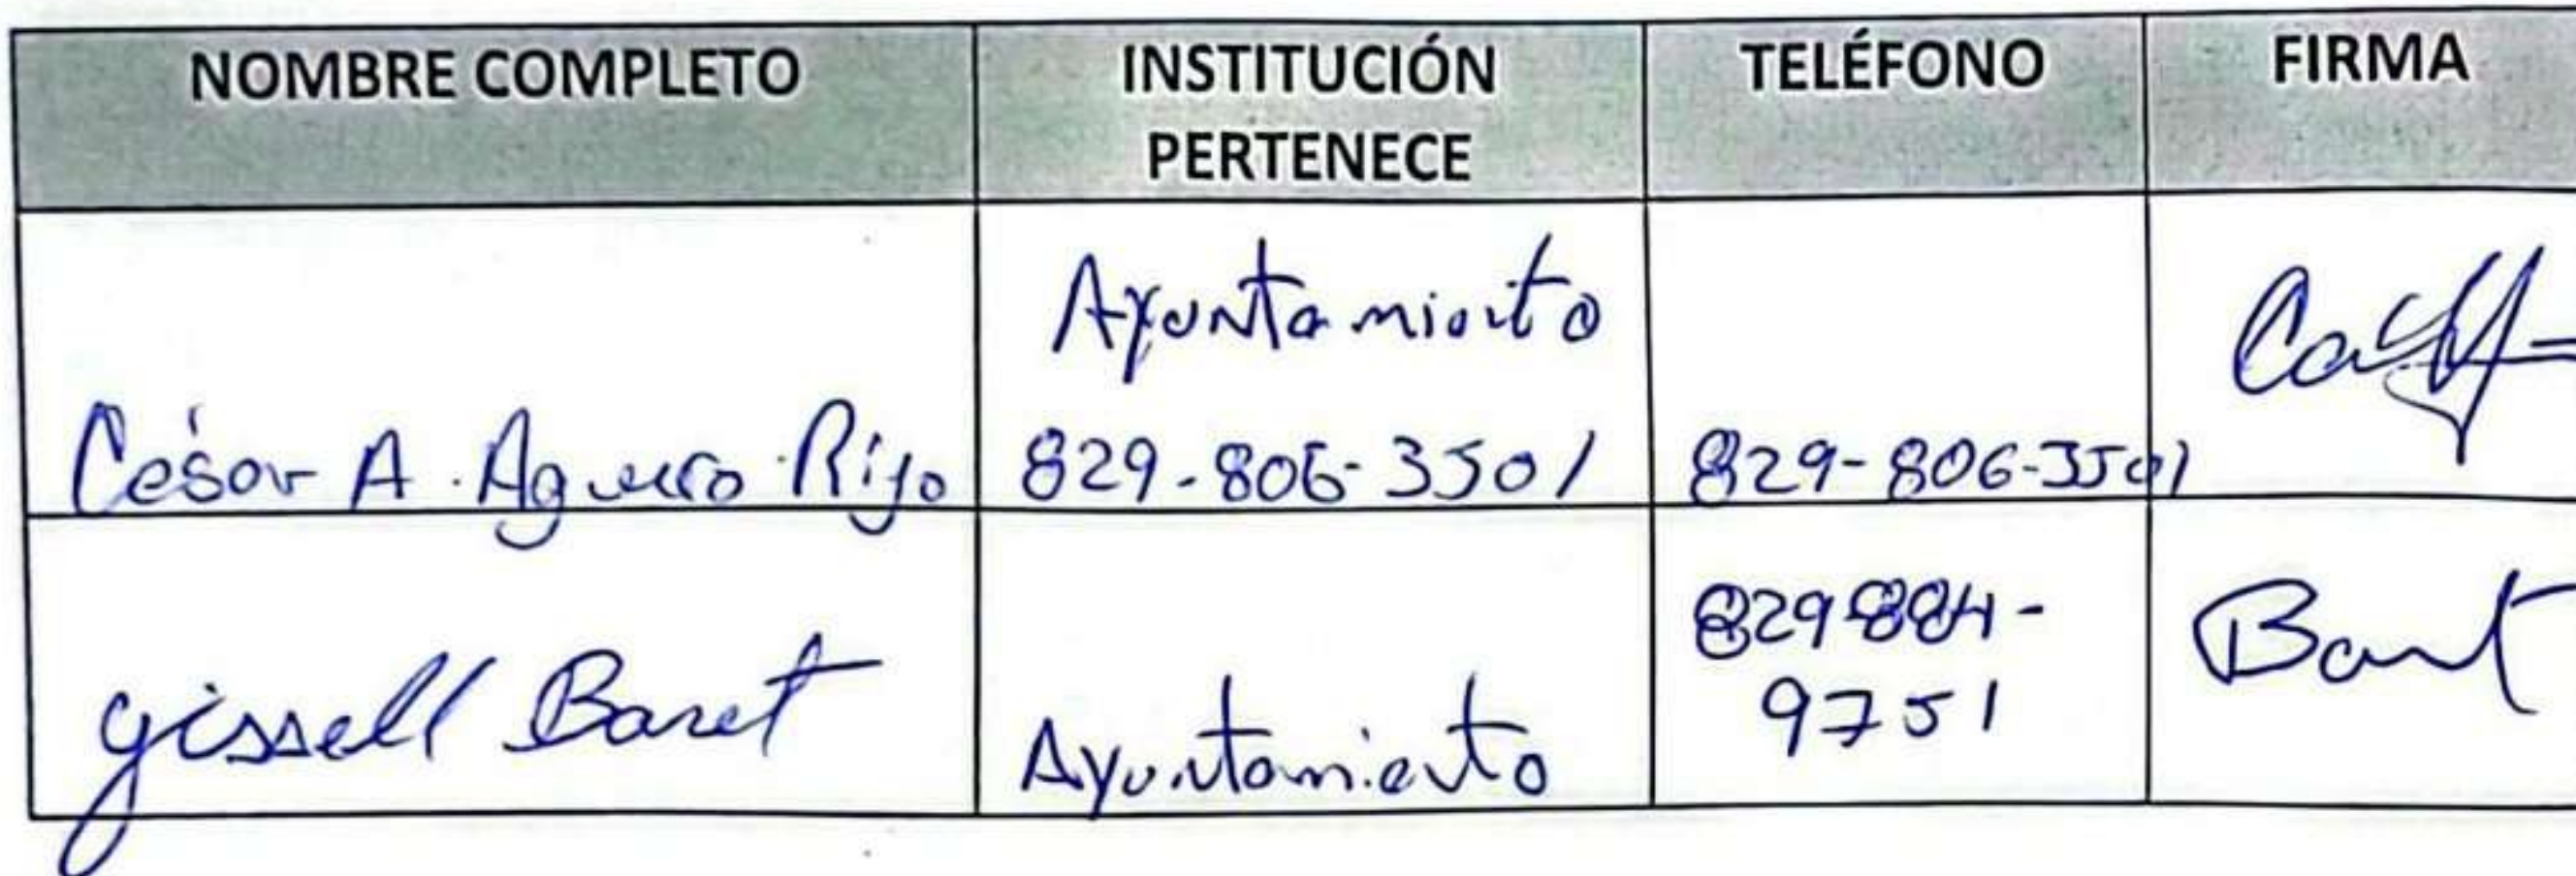 NOMBRE COMPLETO
INSTITUCIÓN
PERTENECE
TELÉFONO
FIRMA
César A. Aguero Rijo
Ayuntamiento
829-806-3501
829-806-3501
gissell Baret
Ayuntamiento
829884-
9751
Baret